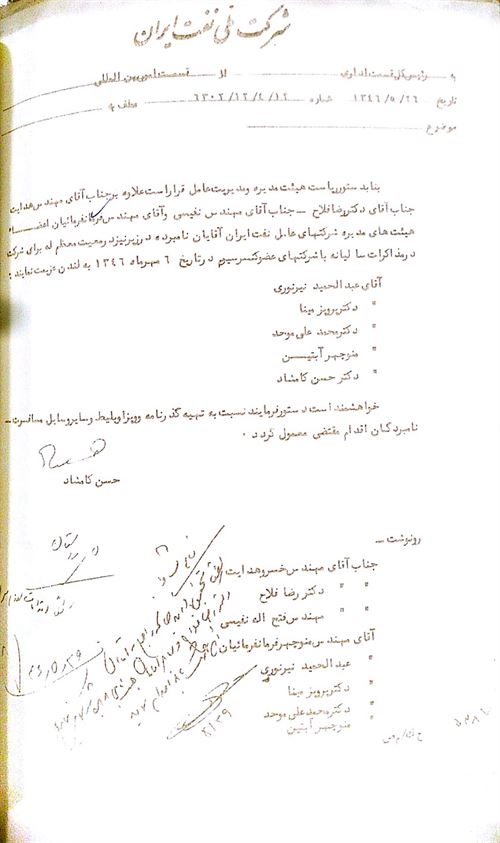 شرکت ملی نفت ایران
به رئیس کل قسمت اداری از قسمت امور بین المللی
تاریخ ۱۳۴۶/۵/۲۶ شماره ۶۳۰۲/۱۲/۴/۱۲ عطف به
موضوع
بنا بدستور ریاست هیئت مدیره و مدیریت عامل قرار است علاوه بر جناب آقای مهندس هدایت
جناب آقای دکتر رضا فلاح – جناب آقای مهندس نفیسی و آقای مهندس فرمانفرمائیان اعضاء
هیئت های مدیره شرکتهای عامل نفت ایران آقایان نامبرده در زیر نیز در معیت معظم له برای شرکت
در مذاکرات سالیانه با شرکتهای عضو کنسرسیوم در تاریخ ۶ مهرماه ۱۳۴۶ به لندن عزیمت نمایند :
آقای عبدالحمید نیرنوری
" دکتر پرویز مینا
" دکتر محمد علی موحد
" منوچهر آبتین
" دکتر حسن کامشاد
خواهشمند است دستور فرمایند نسبت به تهیه گذرنامه و ویزا و بلیط و سایر وسایل مسافرت –
نامبردگان اقدام مقتضی معمول گردد .
حسن کامشاد
رونوشت –
جناب آقای مهندس خسرو هدایت
" " دکتر رضا فلاح
" " مهندس فتح اله نفیسی
آقای مهندس منوچهر فرمانفرمائیان
" عبدالحمید نیرنوری
" دکتر پرویز مینا
" دکتر محمد علی موحد
" منوچهر آبتین